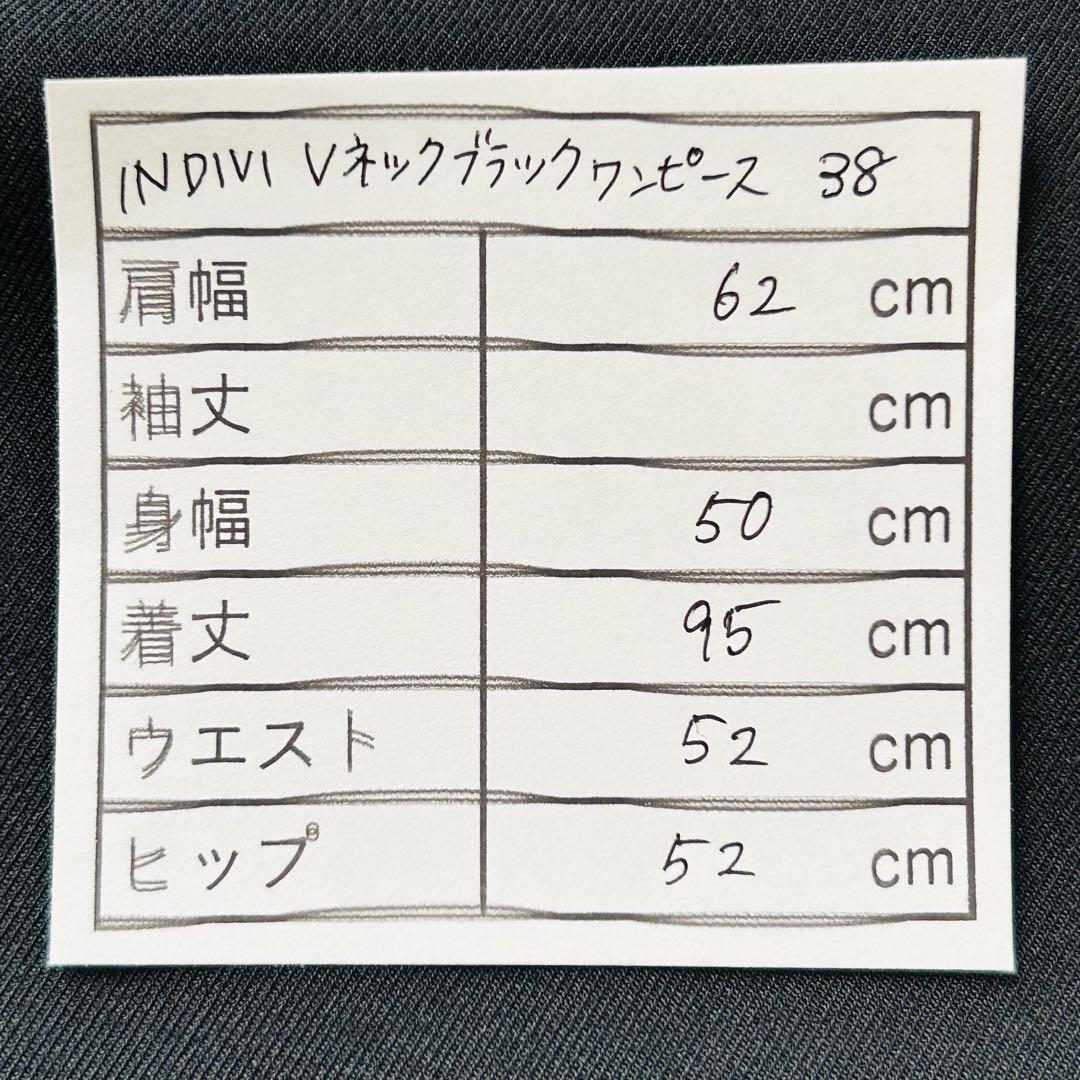 INDIVI Vネックブラックワンピース 38
肩幅 62 cm
袖丈 cm
身幅 50 cm
着丈 95 cm
ウエスト 52 cm
ヒップ 52 cm